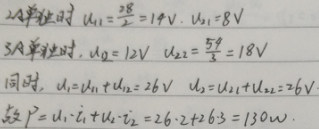 2A单独时 u₁₁ = 28/2 = 14V. u₂₁ = 8V
3A单独时. u₁₂ = 12V u₂₂ = 54/3 = 18V
同时. u₁ = u₁₁ + u₁₂ = 26V u₂ = u₂₁ + u₂₂ = 26V.
故 P = u₁·i₁ + u₂·i₂ = 26·2 + 26·3 = 130W.